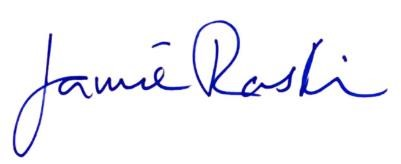 Jamie Raskin